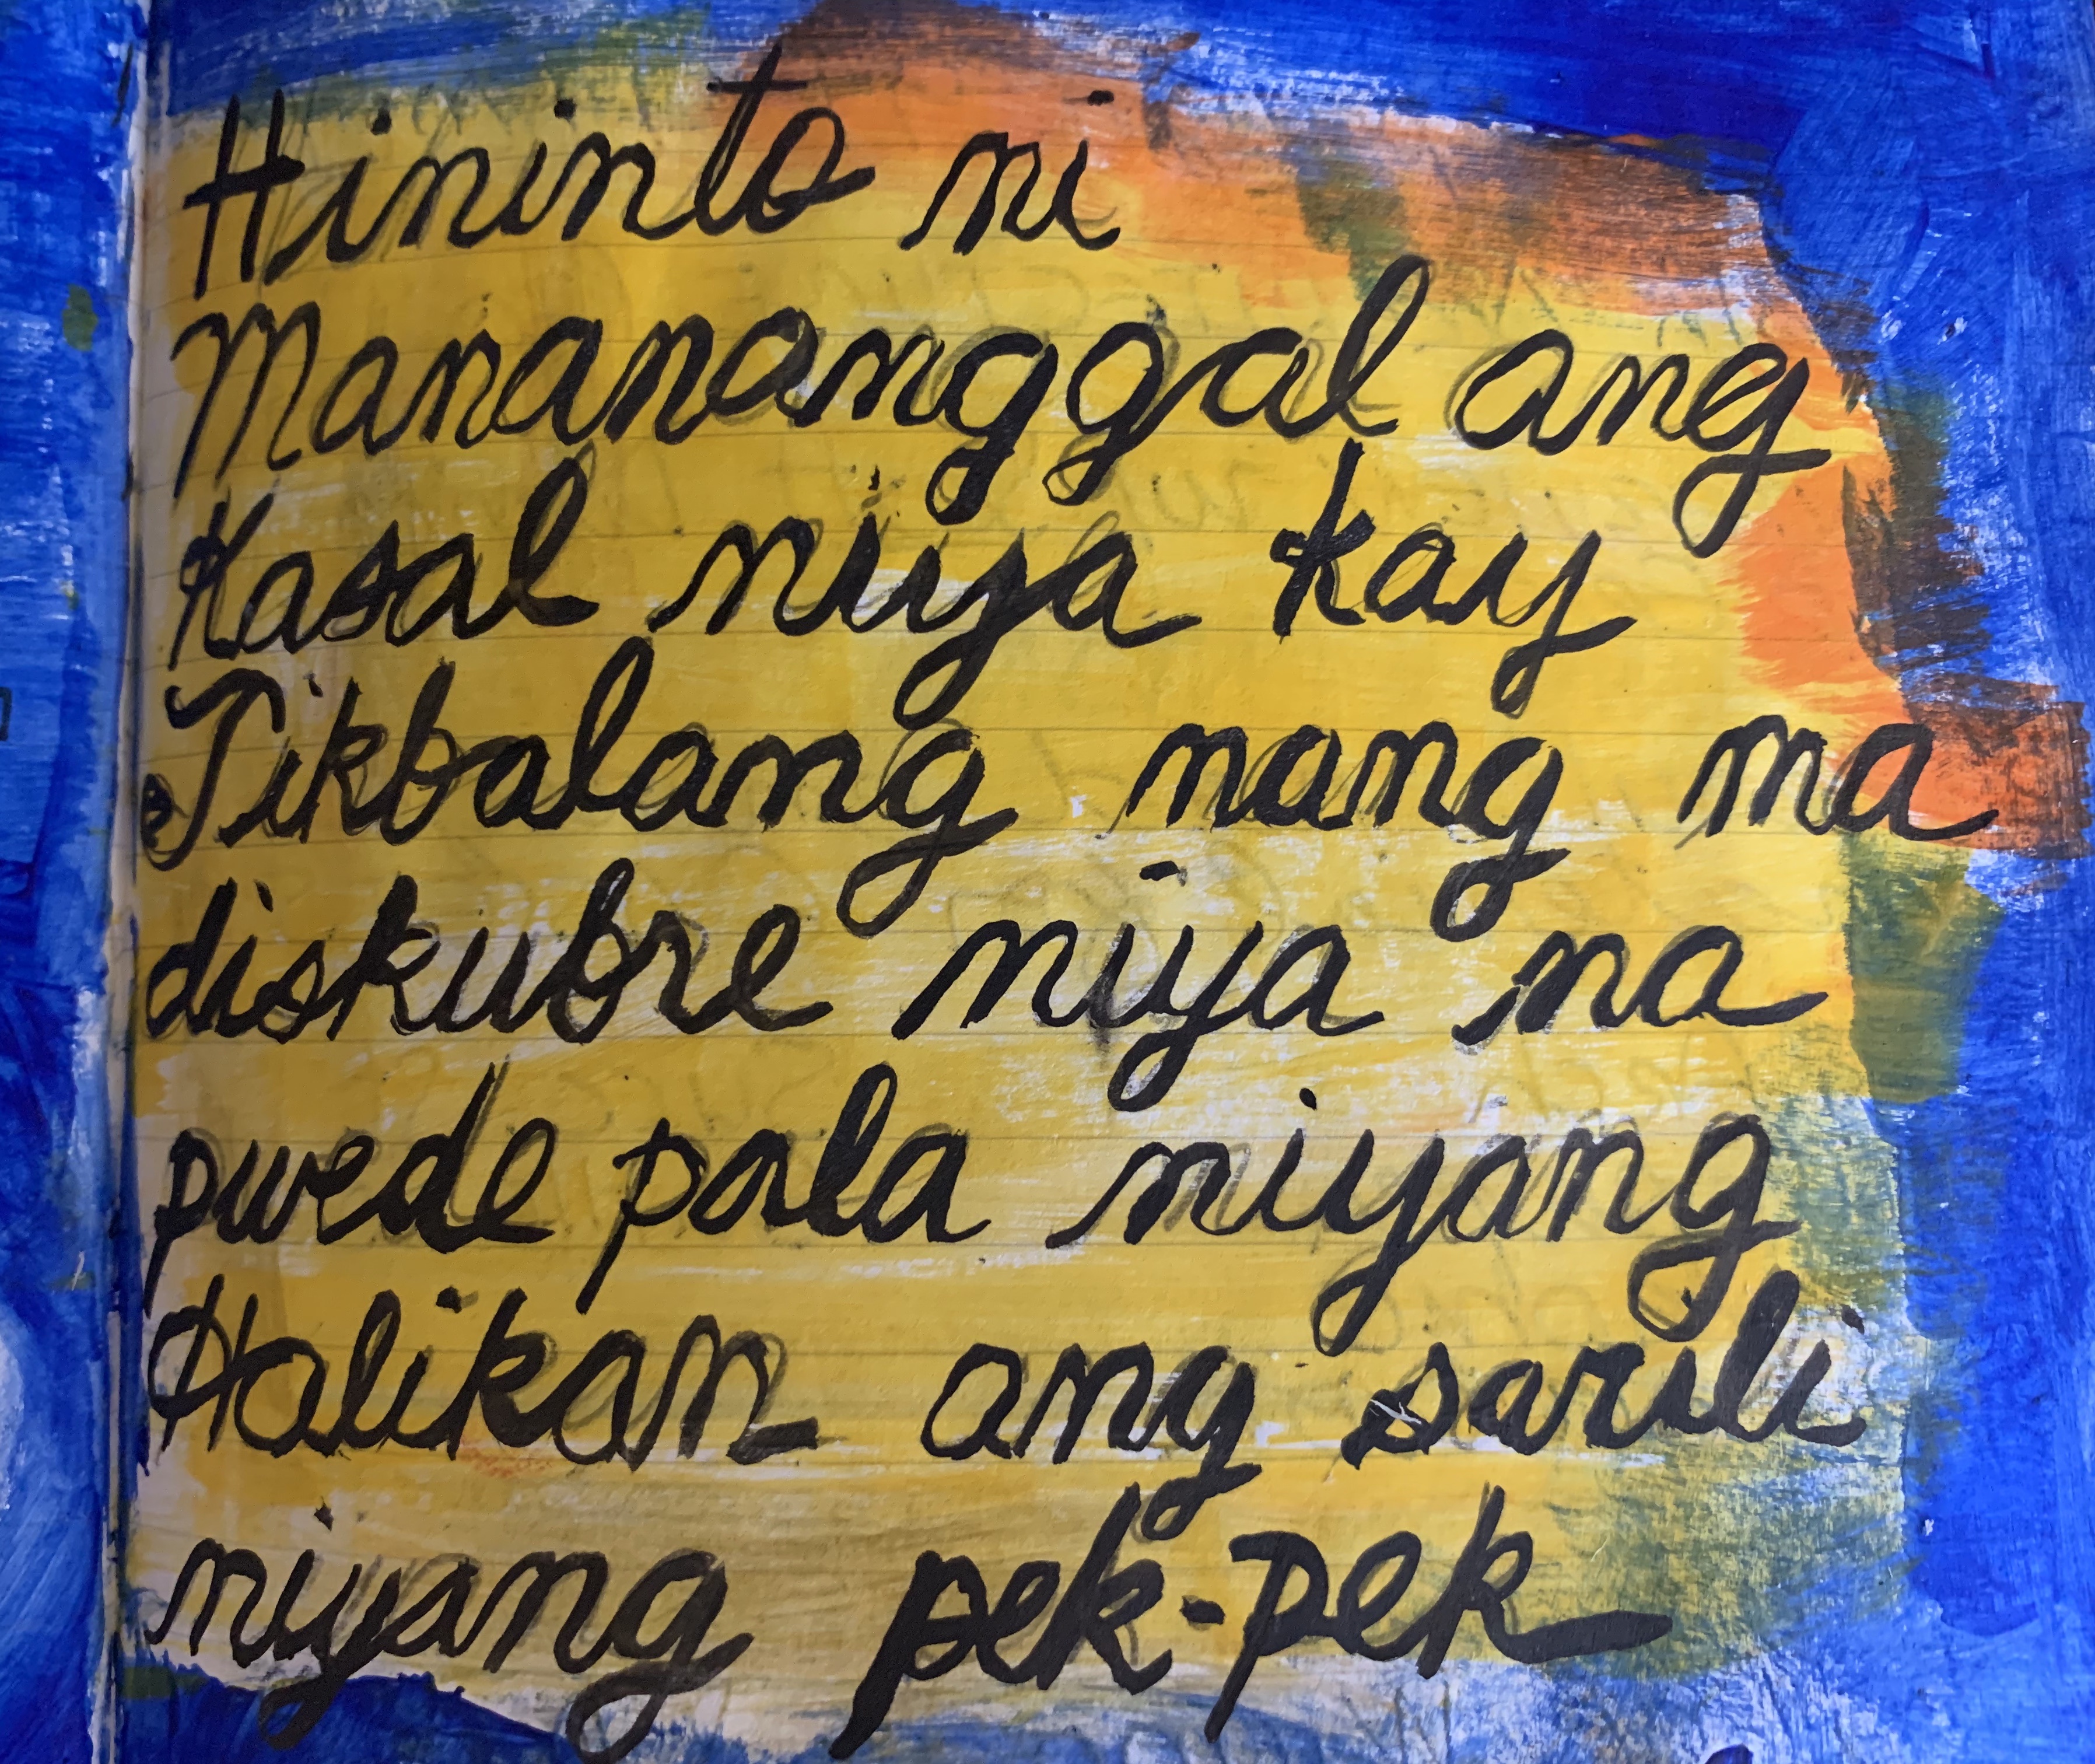 Hininto ni
Manananggal ang
Kasal niya kay
Tikbalang nang ma
diskubre niya na
pwede pala niyang
Halikan ang sarili
niyang pek-pek